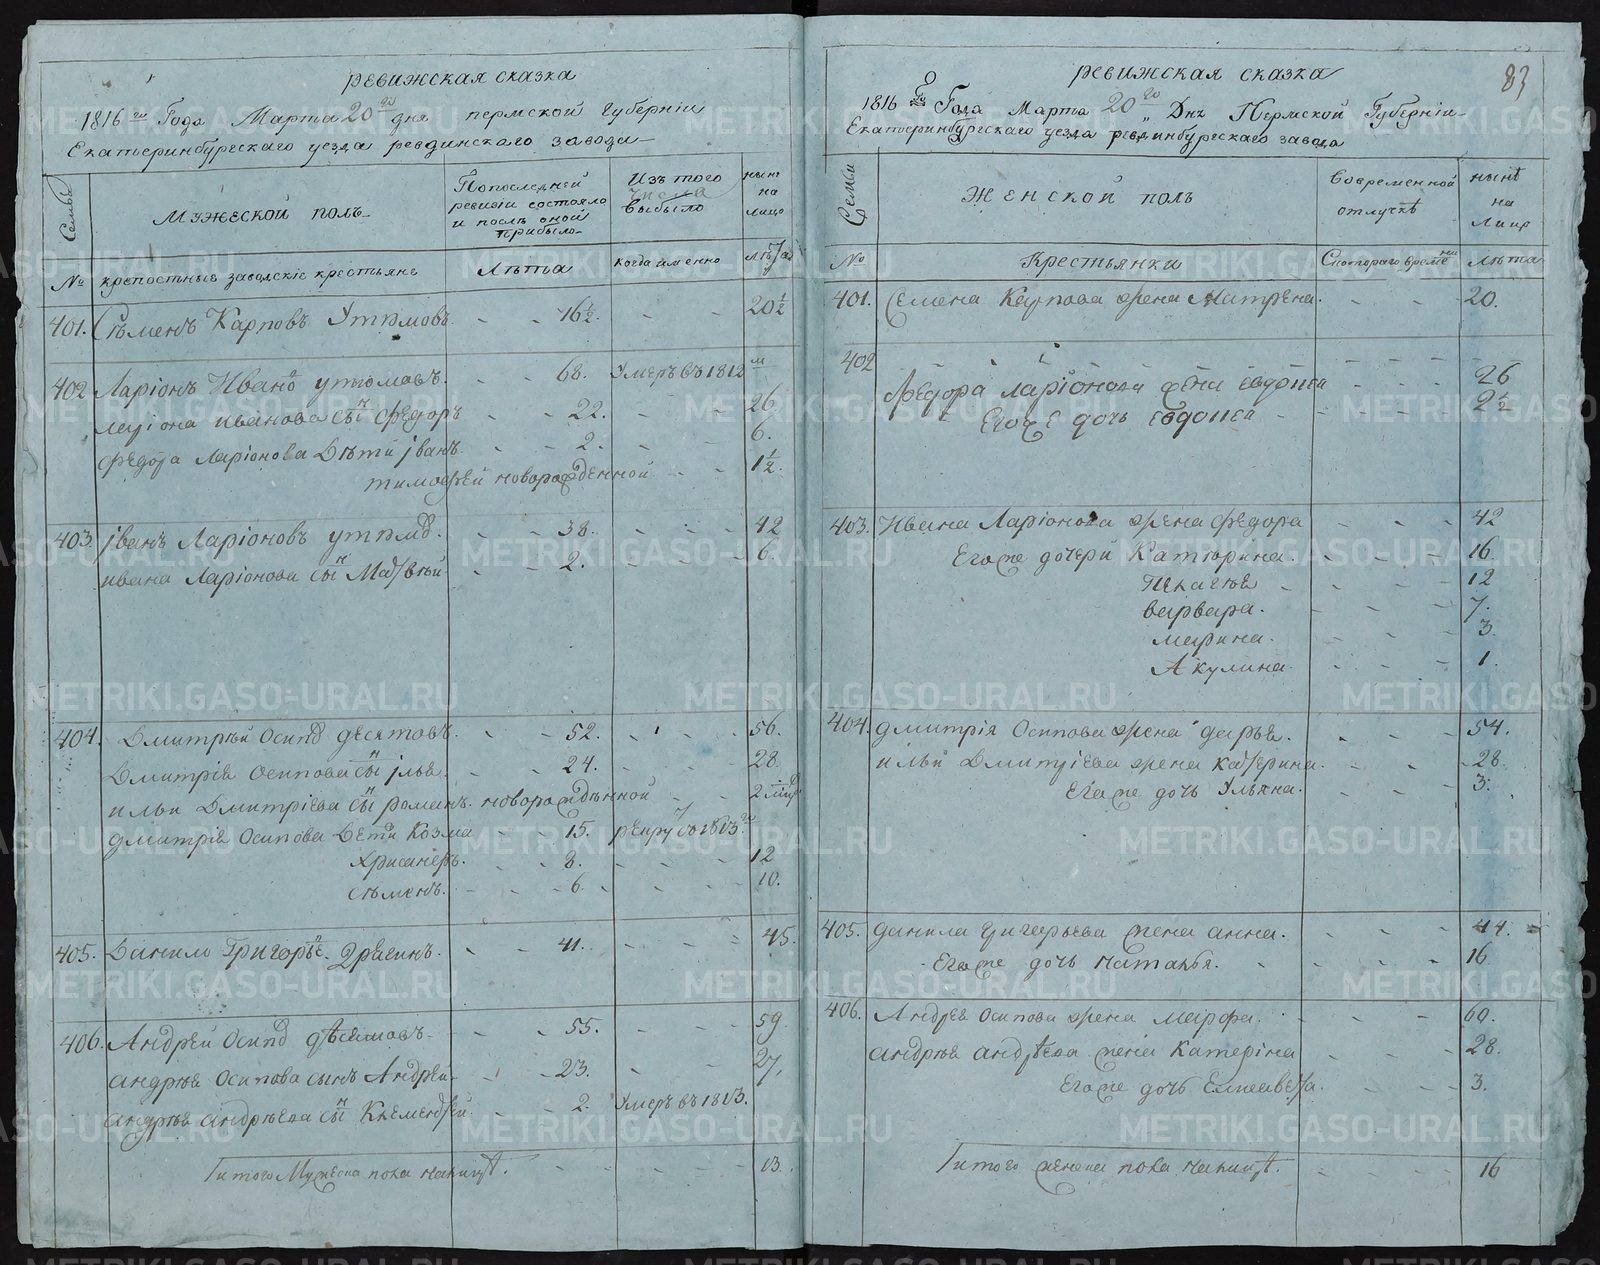 ревижская сказка
1816го Года Марта 20го дня пермской Губерніи
Екатеринбургскаго уезда ревдинскаго завода
Семьи
Мужеской полъ
Попоследней ревизіи состояло и послѣ оной прибыло
Изъ того числа выбыло
нынѣ на лицо
№ крепостные заводскіе крестьяне
Лѣта
когда именно
лѣта
401. Сѣменъ Карповъ Утюмовъ 16½. 20½
402 Ларіонъ Ивано утюмовъ. 68. Умеръ въ 1812м
ларіона иванова сынъ федоръ 22. 26
федора ларіонова дѣти іванъ 2. 6.
тимофей новорожденной 1½
403 іванъ Ларіоновъ утюмо. 38. 42
ивана Ларіонова сынъ Матвѣй 2. 6.
404. Дмитрѣй Осипо десятовъ. 52. 56.
Дмитрія осипова сынъ ілья. 24. 28
ильи Дмитріева сынъ романъ. новорожденной 2
дмитрія Осипова дети Козма 15. рекру во 1813го
Хрисанфъ. 8. 12
сѣменъ. 6. 10.
405. Данило Григорье. Дрягинъ. 41. 45.
406. Андрей Осипо 55. 59
андрѣя Осипова сынъ Андрей 23. 27,
андрѣя андрѣева сынъ Клементей 2. Умеръ въ 1813.
Итого Мужеска пола налицо. 13.
83
ревижская сказка
1816го Года Марта 20го Дня Пермской Губерніи
Екатеринбургскаго уезда ревдинбургскаго завода
Семьи
Женской полъ
Вовременной отлучкѣ
нынѣ на Лицо
№ Крестьянки
Скотораго времени
лѣта
401. Семена Карпова жена Матрена. 20.
402
Федора ларіонова жена евдокея 26
Егоже дочь евдокея 2½
403. Ивана Ларіонова жена федора 42
Егоже дочери Катюрина. 16
Пелагея 12
варвара. 7.
марина. 3.
Акулина. 1.
404. дмитрія Осипова жена дарья. 54.
ильи Дмитріева жена катерина. 28.
Егоже дочь Ульяна. 3.
405. данила григорьева жена анна. 44.
Егоже дочь наталья. 16
406. Андрея осипова жена марфа. 60.
андрѣя андрѣева жена Катеріна 28.
Егоже дочь Елисавета. 3.
Итого женска пола налицо. 16
METRIKI.GASO-URAL.RU